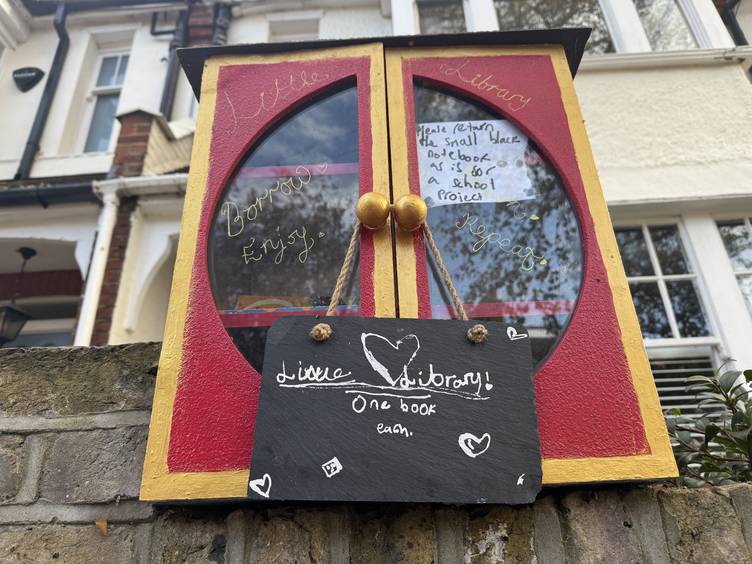 Little Library
Borrow
Enjoy.
Please return
the small black
notebook
as is for
a school
project
Repeat.
Little Library!
One book
each.